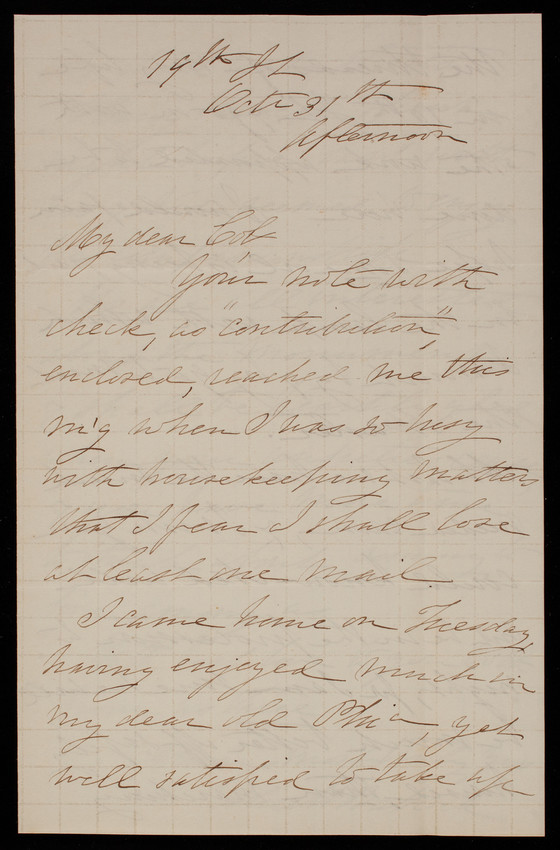 19th St
Octr 31th
Afternoon
My dear Col
Your note with
check, as "contribution",
enclosed, reached me this
m'g when I was so busy
with housekeeping matters
that I fear I shall lose
at least one mail.
I came home on Tuesday,
having enjoyed much in
my dear old Phia, yet
well satisfied to take up